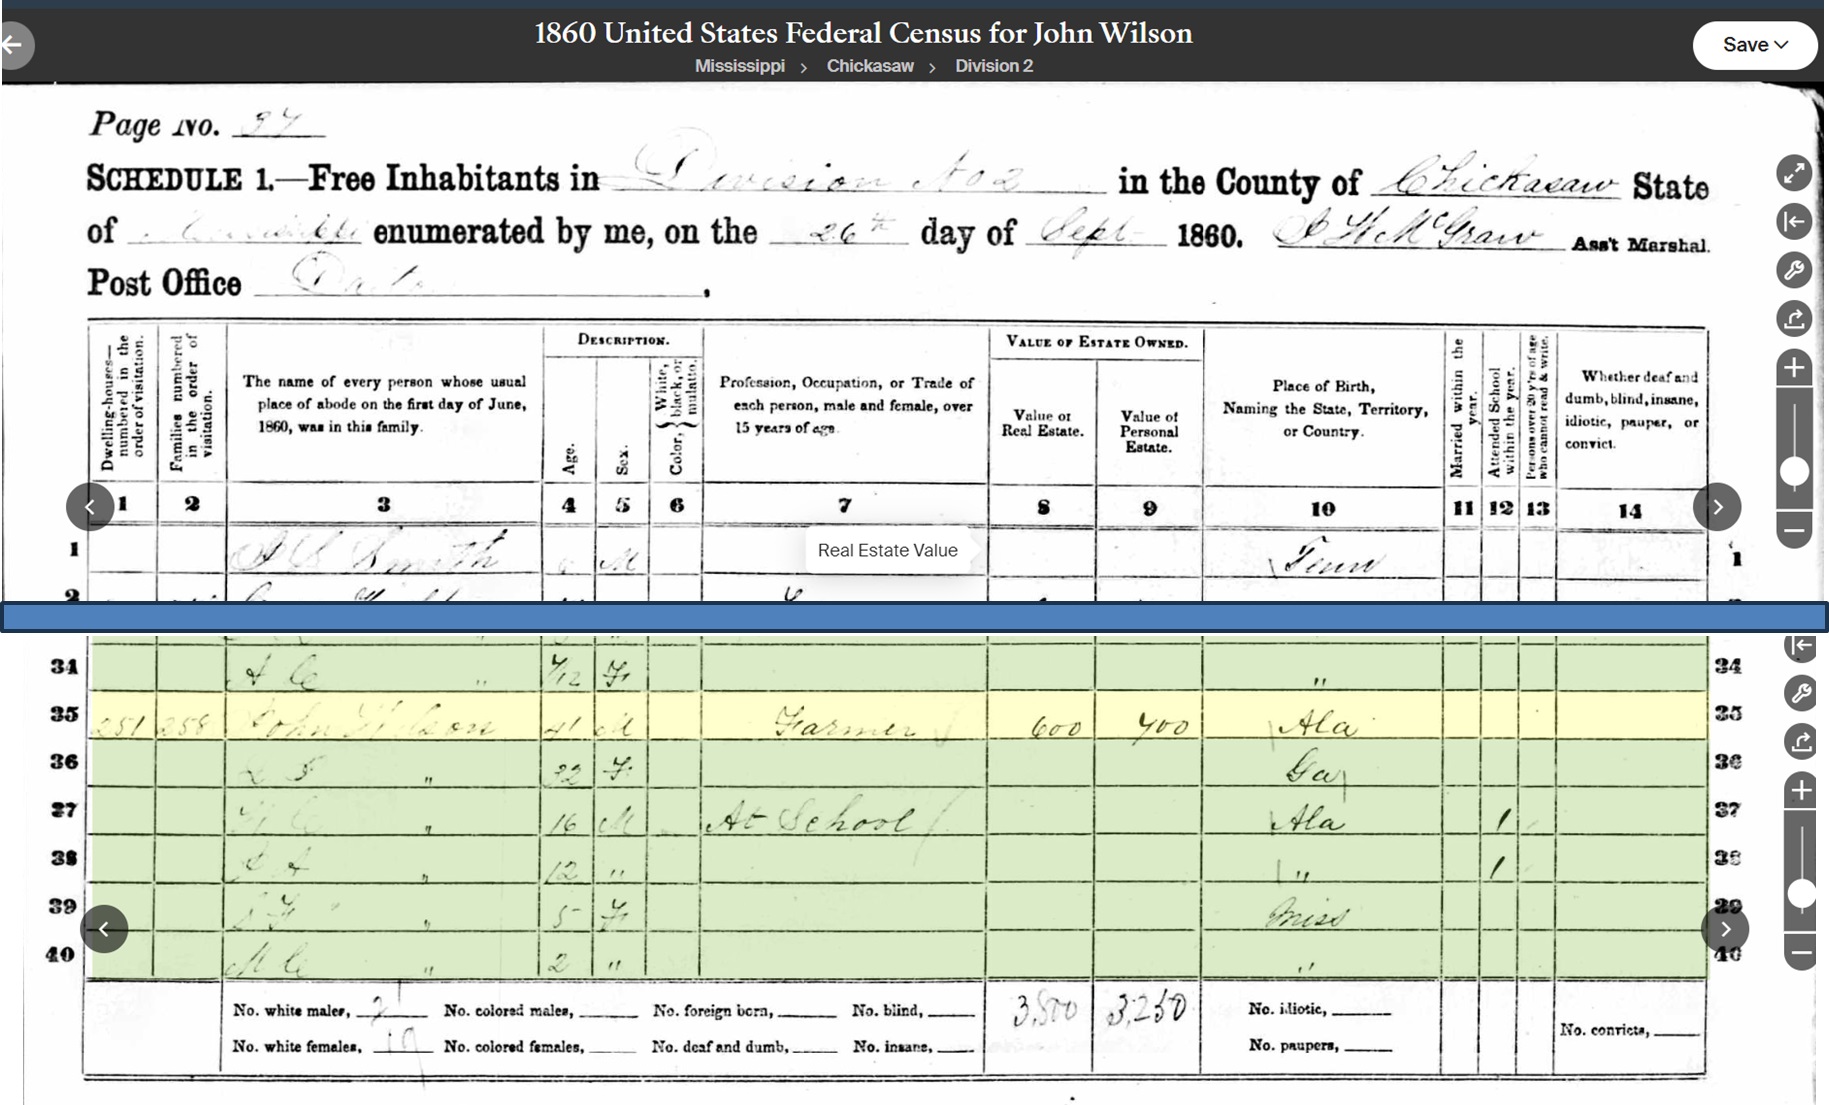 1860 United States Federal Census for John Wilson
Save
Mississippi > Chickasaw > Division 2
Page No. 37
SCHEDULE 1.—Free Inhabitants in Division No 2 in the County of Chickasaw State
of enumerated by me, on the 26th day of Sept 1860. McGraw Ass't Marshal.
Post Office
Dwelling-houses—numbered in the order of visitation.
Families numbered in the order of visitation.
The name of every person whose usual place of abode on the first day of June, 1860, was in this family.
DESCRIPTION.
Age.
Sex.
Color, { White, black, or mulatto.
Profession, Occupation, or Trade of each person, male and female, over 15 years of age.
VALUE OF ESTATE OWNED.
Value of Real Estate.
Value of Personal Estate.
Place of Birth, Naming the State, Territory, or Country.
Married within the year.
Attended School within the year.
Persons over 20 y'rs of age who cannot read & write.
Whether deaf and dumb, blind, insane, idiotic, pauper, or convict.
1 2 3 4 5 6 7 8 9 10 11 12 13 14
1 Smith M Tenn 1
Real Estate Value
2
34 A C " 7/12 F " 34
35 251 258 John Wilson 41 M Farmer 600 700 Ala 35
36 " 32 F Ga 36
37 " 16 M At School Ala 1 37
38 A " 12 " " 1 38
39 F " 5 F Miss 39
40 M C " 2 " " 40
No. white males, No. colored males, No. foreign born, No. blind, 3,500 3,250 No. idiotic,
No. white females, 19 No. colored females, No. deaf and dumb, No. insane, No. paupers, No. convicts,